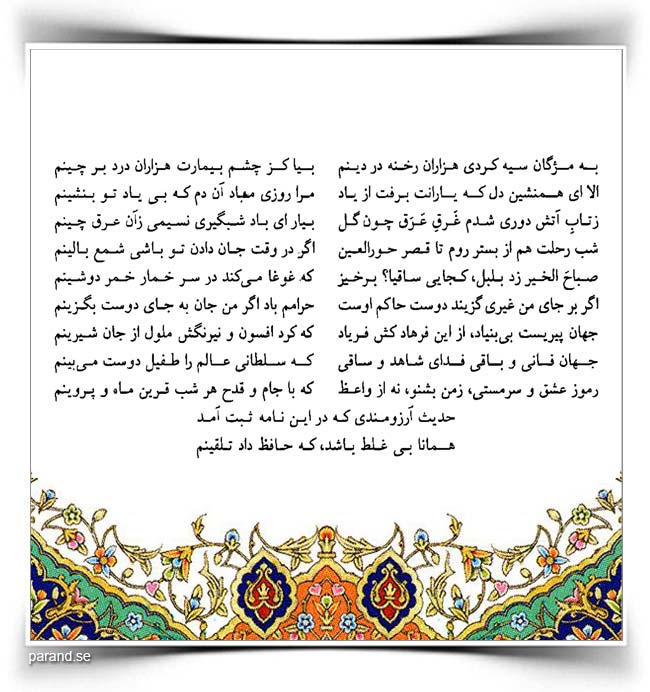 به مژگان سیه کردی هزاران رخنه در دینم بیا کز چشم بیمارت هزاران درد بر چینم
الا ای همنشین دل که یارانت برفت از یاد مرا روزی مباد آن دم که بی یاد تو بنشینم
زتابِ آتش دوری شدم غَرقِ عَرَق چون گل بیار ای باد شبگیری نسیمی زان عرق چینم
شب رحلت هم از بستر روم تا قصر حورالعین اگر در وقت جان دادن تو باشی شمع بالینم
صباحَ الخیر زد بلبل، کجایی ساقیا؟ برخیز که غوغا می‌کند در سر خمار خمر دوشینم
اگر بر جای من غیری گزیند دوست حاکم اوست حرامم باد اگر من جان به جای دوست بگزینم
جهان پیرست بی‌بنیاد، از این فرهاد کش فریاد که کرد افسون و نیرنگش ملول از جان شیرینم
جهان فانی و باقی فدای شاهد و ساقی که سلطانی عالم را طفیل دوست می‌بینم
رموز عشق و سرمستی، زمن بشنو، نه از واعظ که با جام و قدح هر شب قرین ماه و پروینم
حدیث آرزومندی که در این نامه ثبت آمد
همانا بی غلط باشد، که حافظ داد تلقینم
parand.se